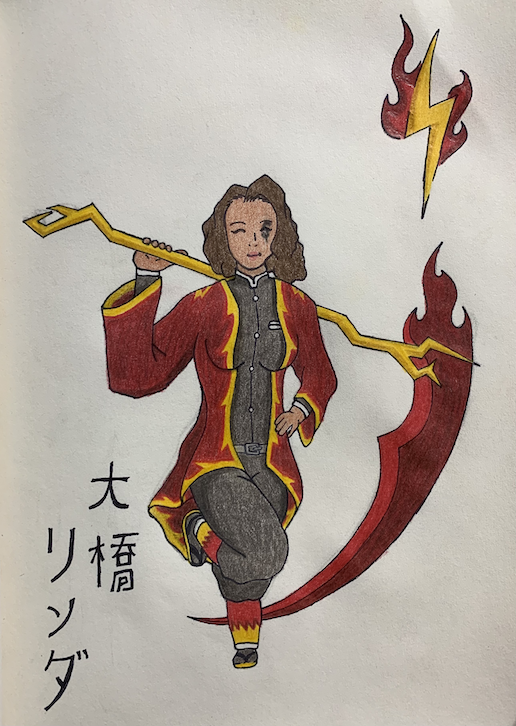 大橋
リンダ